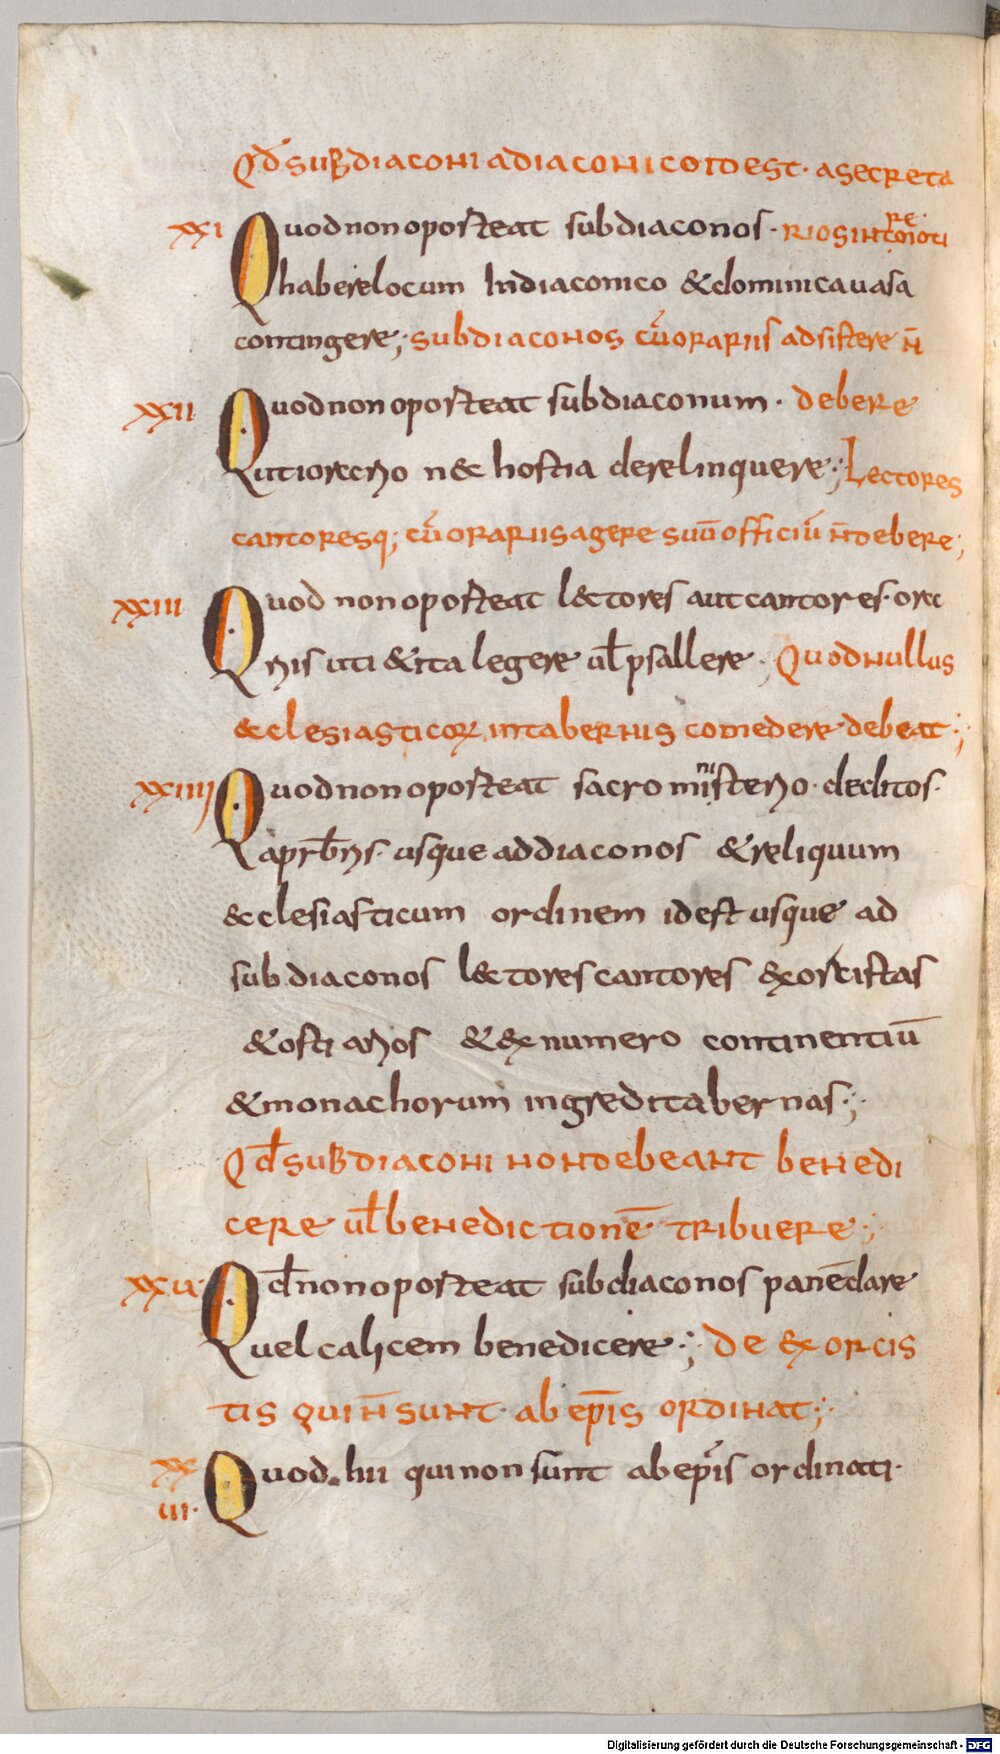 Qd̄ subdiaconi a diaconico id est· a secreta
XXI Quod non oporteat subdiaconos· rio sint remoti
habere locum In diaconico & dominica uasa
contingere; subdiaconos cū orariis adsistere n̄
XXII Quod non oporteat subdiaconum· debere
uti orario n& hostia derelinquere; Lectores
cantoresq; cū orariis agere suū officiū n̄ debere;
XXIII Quod non oporteat lectores aut cantores· ora
riis uti & ita legere ul̄ psallere· Quod nullus
&clesiasticorꝝ in tabernis comedere debeat;
XXIIII Quod non oporteat sacro ministerio· deditos·
a prb̄ris· usque ad diaconos & reliquum
&clesiasticum ordinem id est usque ad
subdiaconos l&ctores cantores &xorcistas
& ostiarios & &x numero continentiū
& monachorum ingredi tabernas;
Qd̄ subdiaconi non debeant benedi
cere ul̄ benedictionē tribuere;
XXU· Qd̄ non oporteat subdiaconos panē dare
uel calicem benedicere; de &xorcis
tis qui n̄ sunt ab ep̄is ordinat;
XX Quod hii qui non sunt ab ep̄is ordinati·
UI·
Digitalisierung gefördert durch die Deutsche Forschungsgemeinschaft - DFG